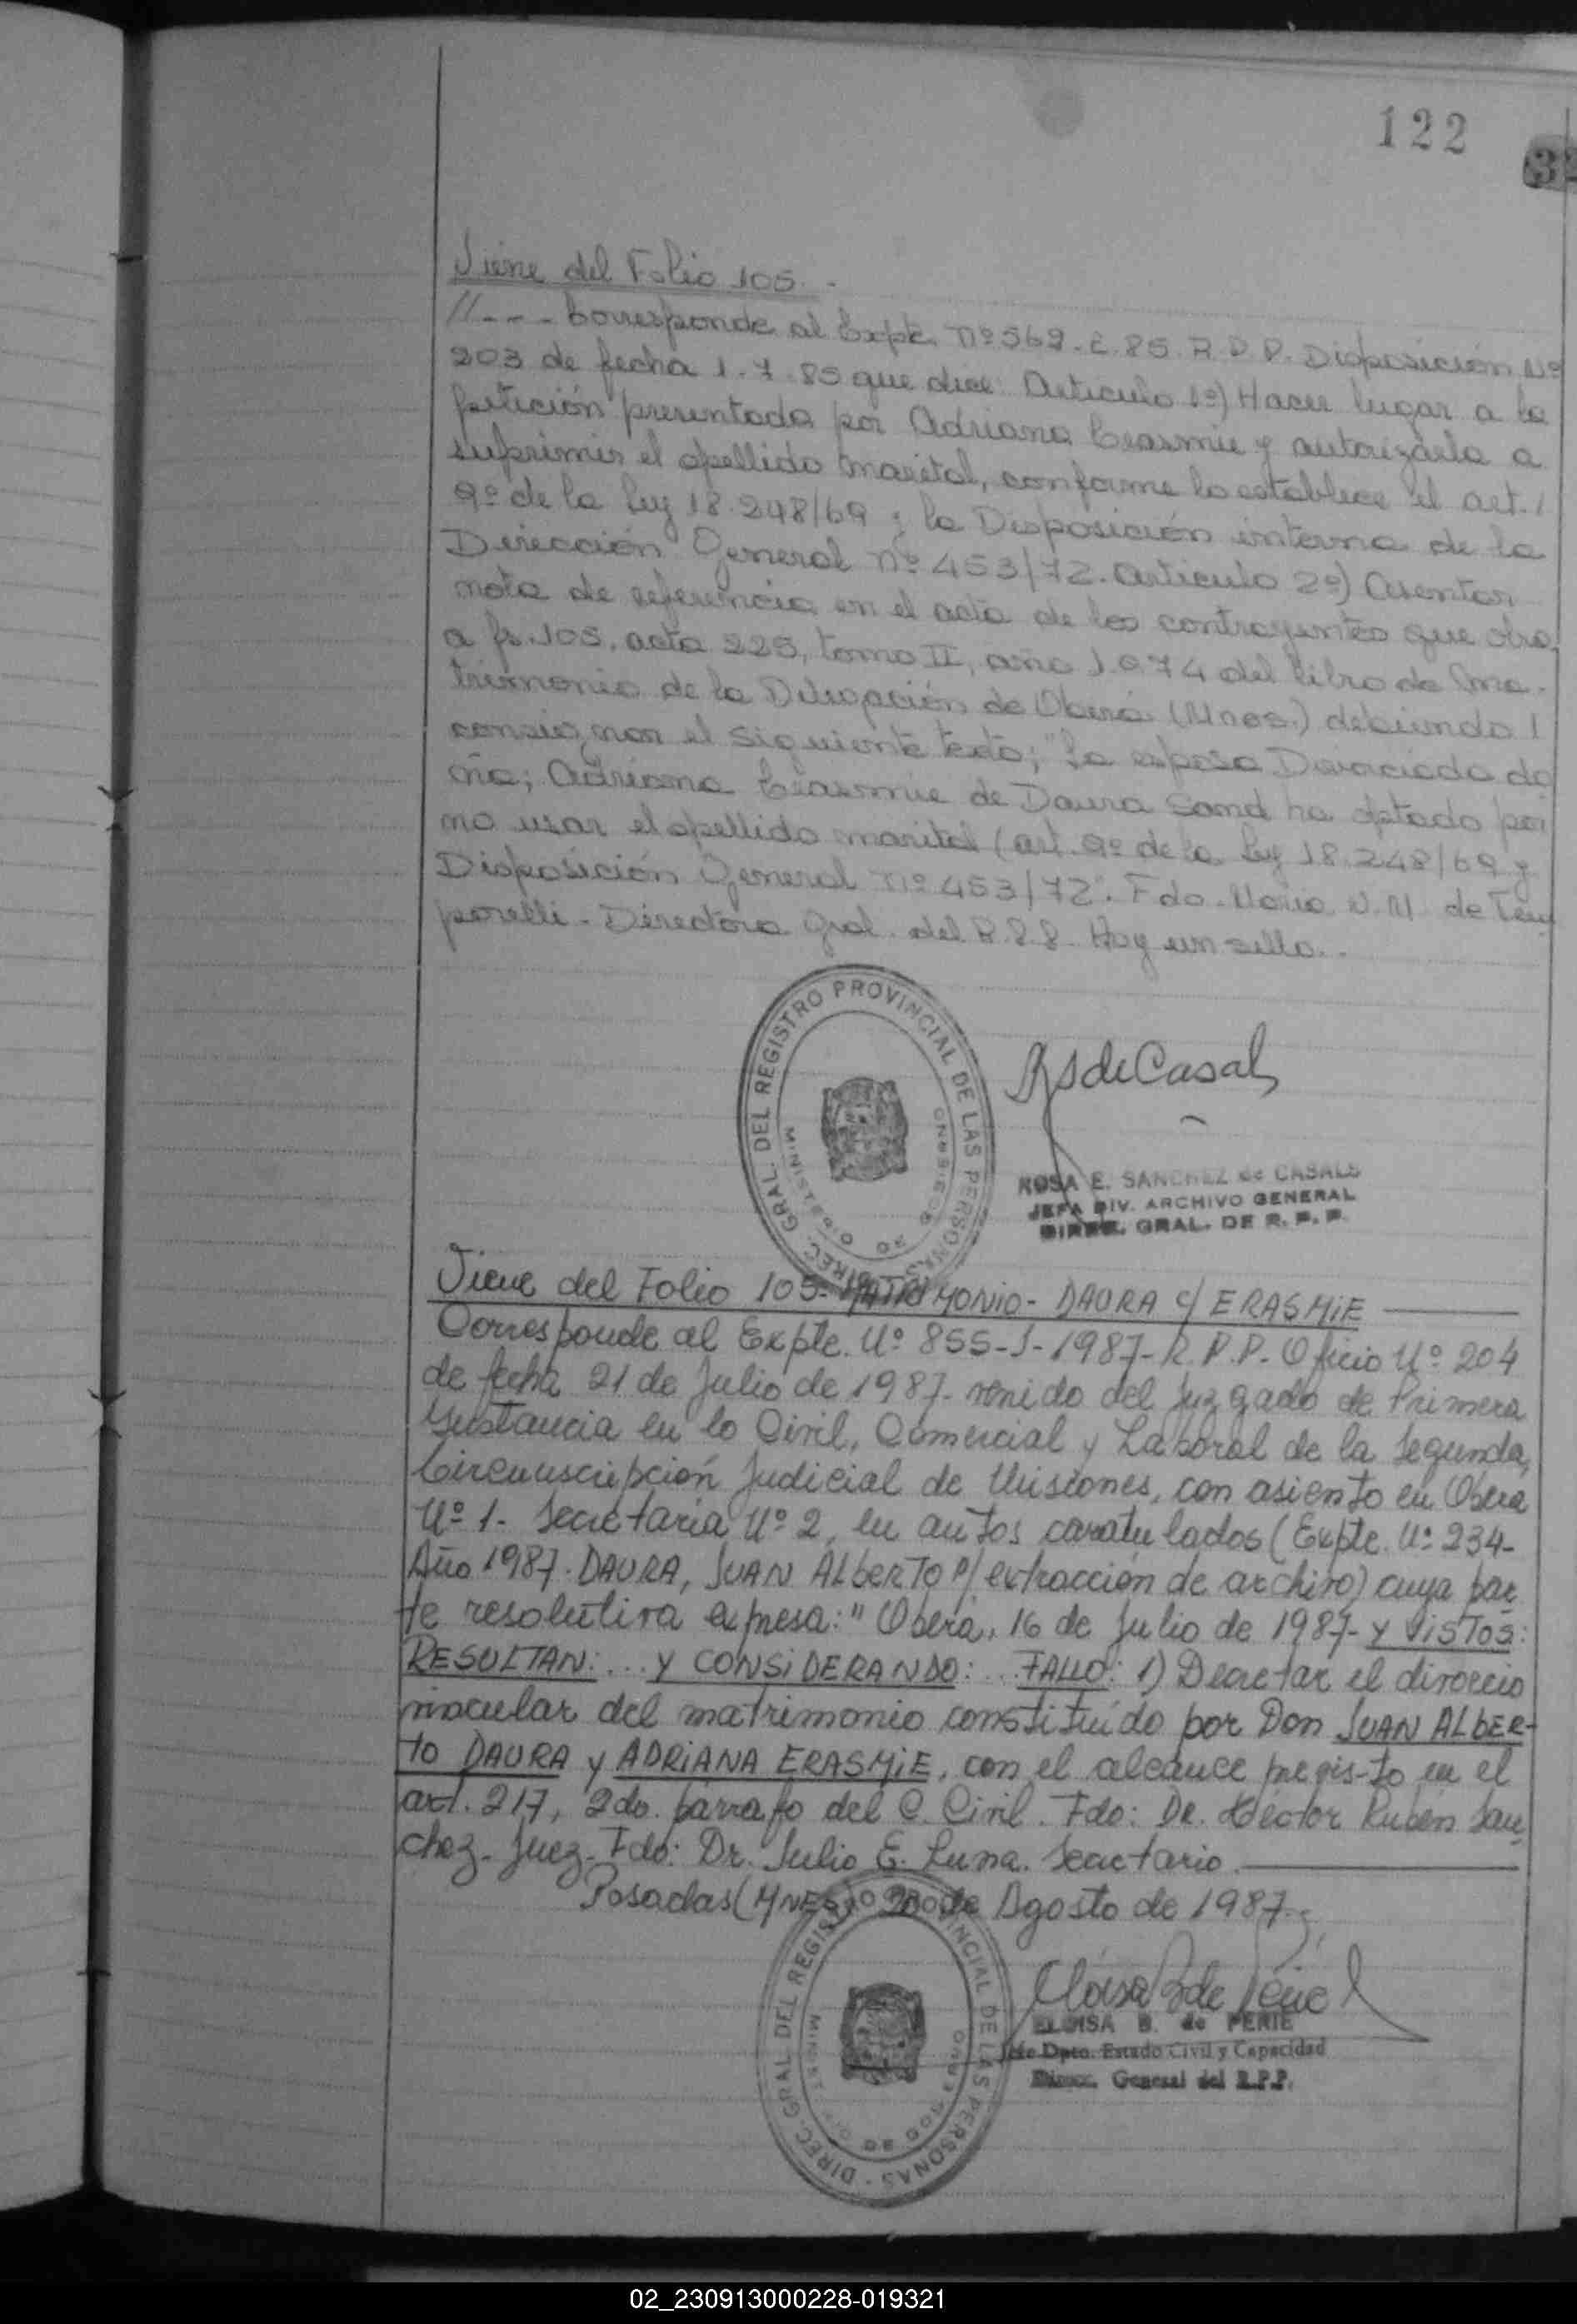 122
3
Viene del Folio 105. -
//--- Corresponde al Expte. Nº 569-E-85. R.P.P. Disposición Nº
203 de fecha 1.7.85 que dice: Artículo 1º) Hacer lugar a la
petición presentada por Adriana Erasmie y autorizarla a
suprimir el apellido marital, conforme lo establece el art. /
9º de la Ley 18.248/69 y la Disposición interna de la
Dirección General Nº 453/72. Artículo 2º) Asentar
nota de referencia en el acta de los contrayentes que obra
a fs. 105, acta 225, tomo II, año 1.974 del libro de Ma-
trimonio de la Delegación de Oberá (Mnes.) debiendo /
consignar el siguiente texto; "La esposa Divorciada do
ña; Adriana Erasmie de Daura Sand ha optado por
no usar el apellido marital (art. 9º de la Ley 18.248/69 y
Disposición General Nº 453/72". Fdo. María N. M. de Tem
porelli - Directora Gral. del R.P.P. Hay un sello. .
DIREC. GRAL. DEL REGISTRO PROVINCIAL DE LAS PERSONAS
MINISTERIO DE GOBIERNO
RSdeCasal
ROSA E. SANCHEZ de CASALS
JEFA DIV. ARCHIVO GENERAL
DIREC. GRAL. DE R. P. P.
Viene del Folio 105- MATRIMONIO- DAURA c/ ERASMiE
Corresponde al Expte. Nº 855-J-1987- R.P.P- Oficio Nº 204
de fecha 21 de Julio de 1987- venido del Juzgado de Primera
Instancia en lo Civil, Comercial y Laboral de la Segunda,
Circunscripción Judicial de Misiones, con asiento en Oberá
Nº 1- Secretaría Nº 2, en autos caratulados (Expte. Nº 234-
Año 1987- DAURA, JUAN ALbERTO P/ extracción de archivo) cuya par
te resolutiva expresa: " Oberá, 16 de Julio de 1987- y ViSTOS:
RESULTAN: ... y CONSiDERANDO: ... FALLO: 1) Decretar el divorcio
vincular del matrimonio constituído por Don JUAN ALbER-
TO DAURA y ADRiANA ERASMiE, con el alcance previs-to en el
art. 217, 2do. párrafo del C. Civil. Fdo: Dr. Héctor Rubén San
chez- Juez- Fdo: Dr. Julio E. Luna. Secretario.
Posadas (MNES) 20 de Agosto de 1987.-
DIREC. GRAL. DEL REGISTRO PROVINCIAL DE LAS PERSONAS
MINISTERIO DE GOBIERNO
Eloisa B de Perié
ELOISA B. de PERIE
Jefe Dpto. Estado Civil y Capacidad
Direcc. General del R.P.P.
02_230913000228-019321